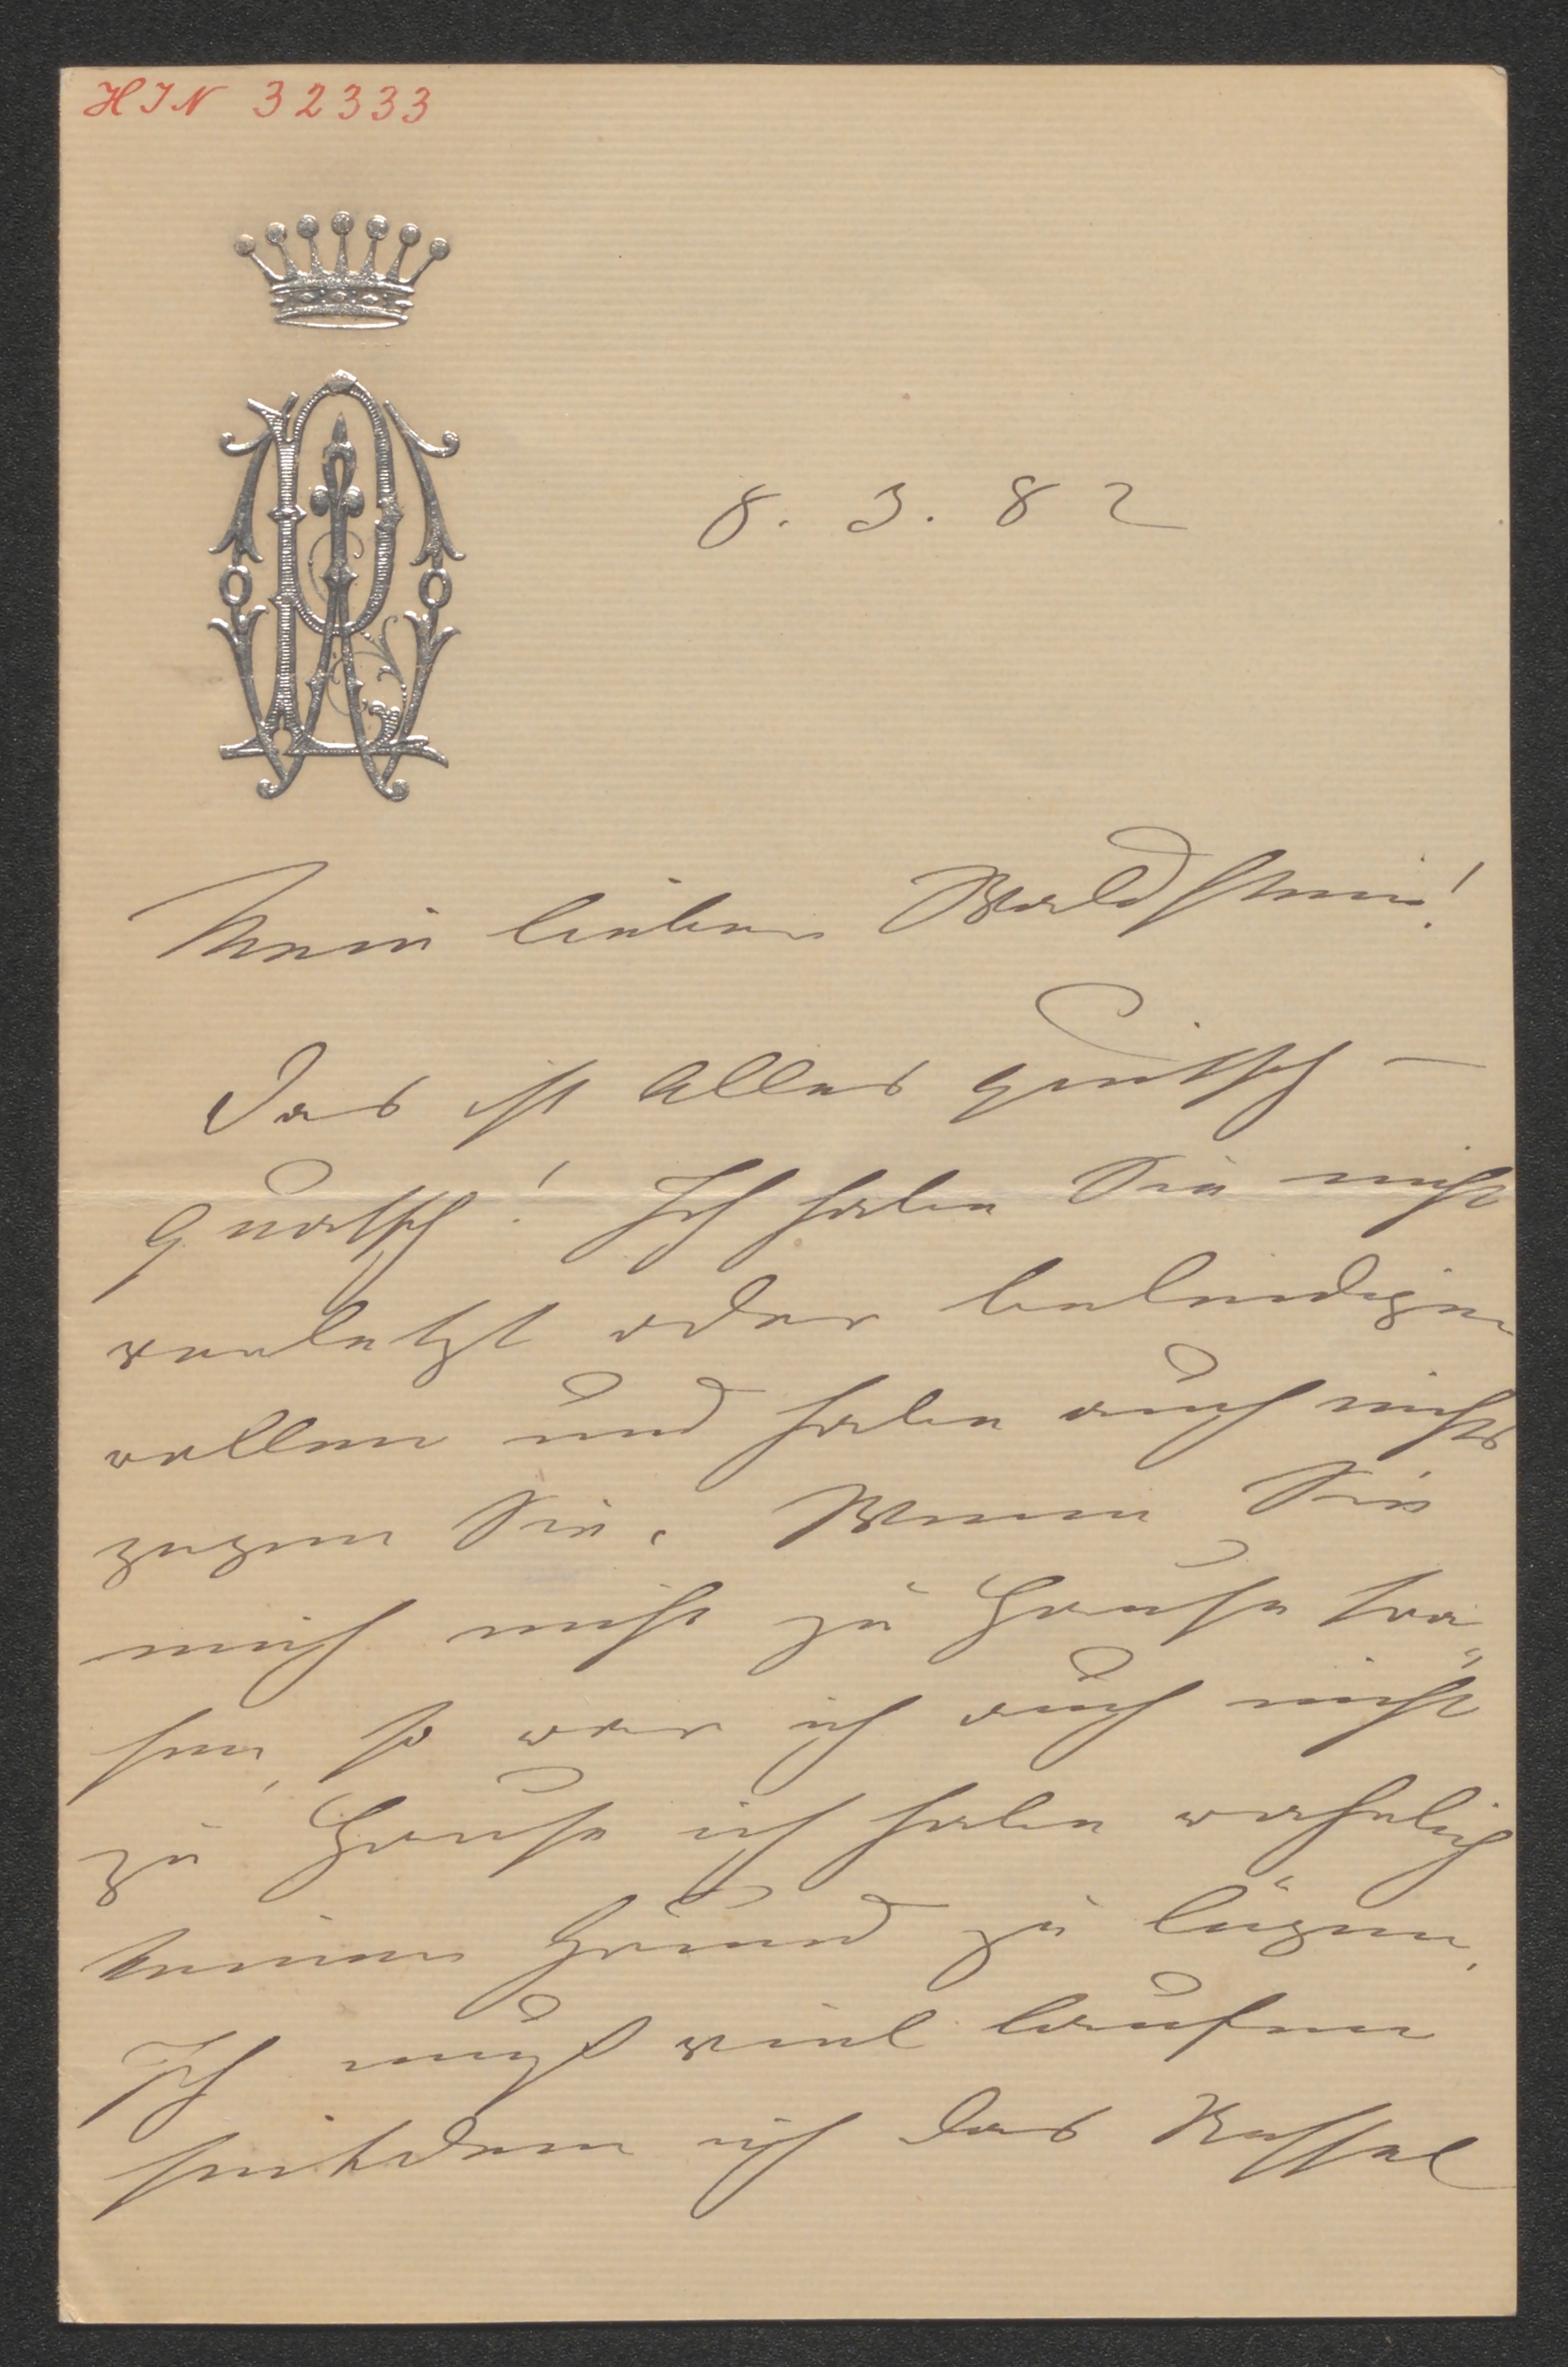 HIN 32333
8. 3. 82
Mein lieber Waldstein!
Das ist Alles quitsch –
quatsch! Ich habe Sie nicht
verletzt oder beleidigen
wollen und habe auch nichts
gegen Sie. Wenn Sie
mich nicht zu Hause tra„
fen, so war ich auch nicht
zu Hause ich habe wahrlich
keinen Grund zu lügen.
Ich muß viel laufen
seitdem ich das